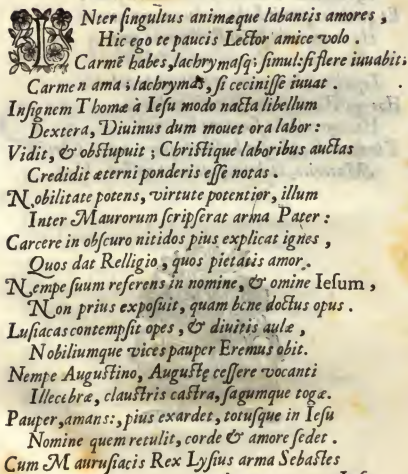 INter ſingultus animæque labantis amores,
Hic ego te paucis Lector amice volo.
Carmē habes, lachrymaſq; ſimul: ſi flere iuuabit;
Carmen ama; lachrymas, ſi ceciniſſe iuuat.
Inſignem Thomæ à Ieſu modo nacta libellum
Dextera, Diuinus dum mouet ora labor:
Vidit, & obſtupuit; Chriſtique laboribus auctas
Credidit æterni ponderis eſſe notas.
Nobilitate potens, virtute potentior, illum
Inter Maurorum ſcripſerat arma Pater:
Carcere in obſcuro nitidos pius explicat ignes,
Quos dat Relligio, quos pietatis amor.
Nempe ſuum referens in nomine, & omine Ieſum,
Non prius expoſuit, quam bene doctus opus.
Luſiacas contempſit opes, & diuitis aulæ,
Nobiliumque vices pauper Eremus obit.
Nempe Auguſtino, Auguſtę ceſſere vocanti
Illecebræ, clauſtris caſtra, ſagumque togæ.
Pauper, amans:, pius exardet, totuſque in Ieſu
Nomine quem retulit, corde & amore ſedet.
Cum Mauruſiacis Rex Lyſius arma Sebaſtes